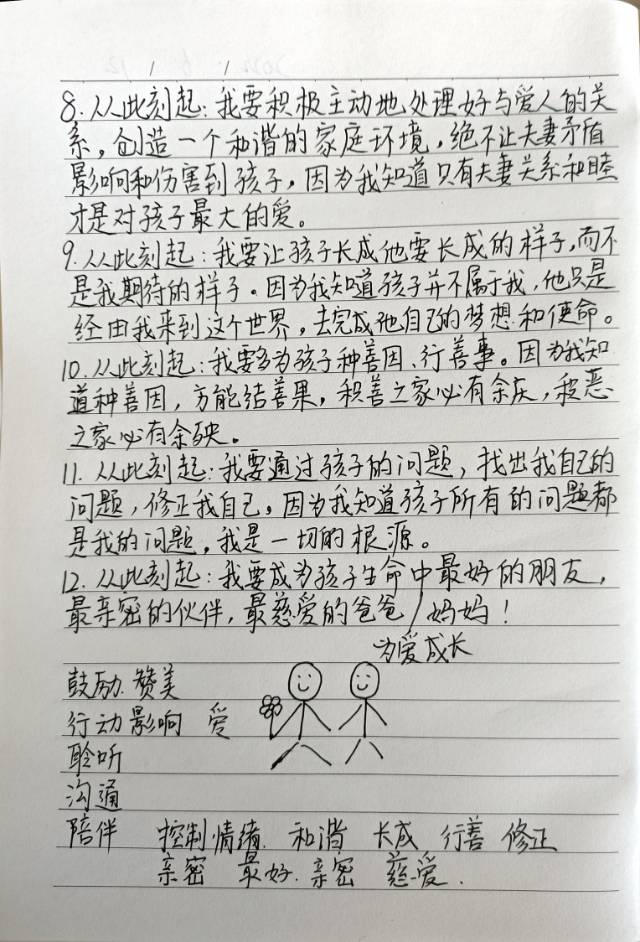 8.从此刻起:我要积极主动地处理好与爱人的关
系,创造一个和谐的家庭环境,绝不让夫妻矛盾
影响和伤害到孩子,因为我知道只有夫妻关系和睦
才是对孩子最大的爱。
9.从此刻起:我要让孩子长成他要长成的样子,而不
是我期待的样子。因为我知道孩子并不属于我,他只是
经由我来到这个世界,去完成他自己的梦想和使命。
10.从此刻起:我要多为孩子种善因、行善事。因为我知
道种善因,方能结善果,积善之家必有余庆,积恶
之家必有余殃。
11.从此刻起:我要通过孩子的问题,找出我自己的
问题,修正我自己,因为我知道孩子所有的问题都
是我的问题,我是一切的根源。
12.从此刻起:我要成为孩子生命中最好的朋友,
最亲密的伙伴,最慈爱的爸爸/妈妈!
为爱成长
鼓励.赞美
行动影响 爱
聆听
沟通
陪伴 控制情绪. 和谐 长成 行善 修正
亲密 最好.亲密 慈爱.